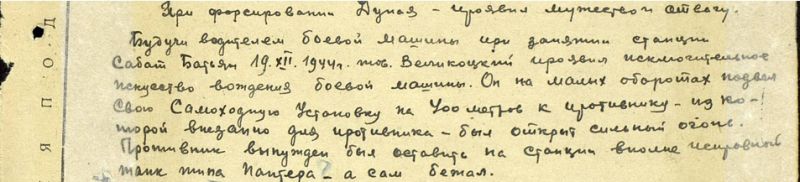 При форсировании Дуная - проявил мужество и отвагу.
Будучи водителем боевой машины при занятии станции
Сабат Батьян 19.XII.1944г. тов. Великоцкий проявил исключительное
искуство вождения боевой машины. Он на малых оборотах подвел
свою Самоходную Установку на 400 метров к противнику - из ко-
торой внезапно для противника - был открыт сильный огонь.
Противник вынужден был оставить на станции вполне исправный
танк типа Пантера - а сам бежал.
Я П О Д